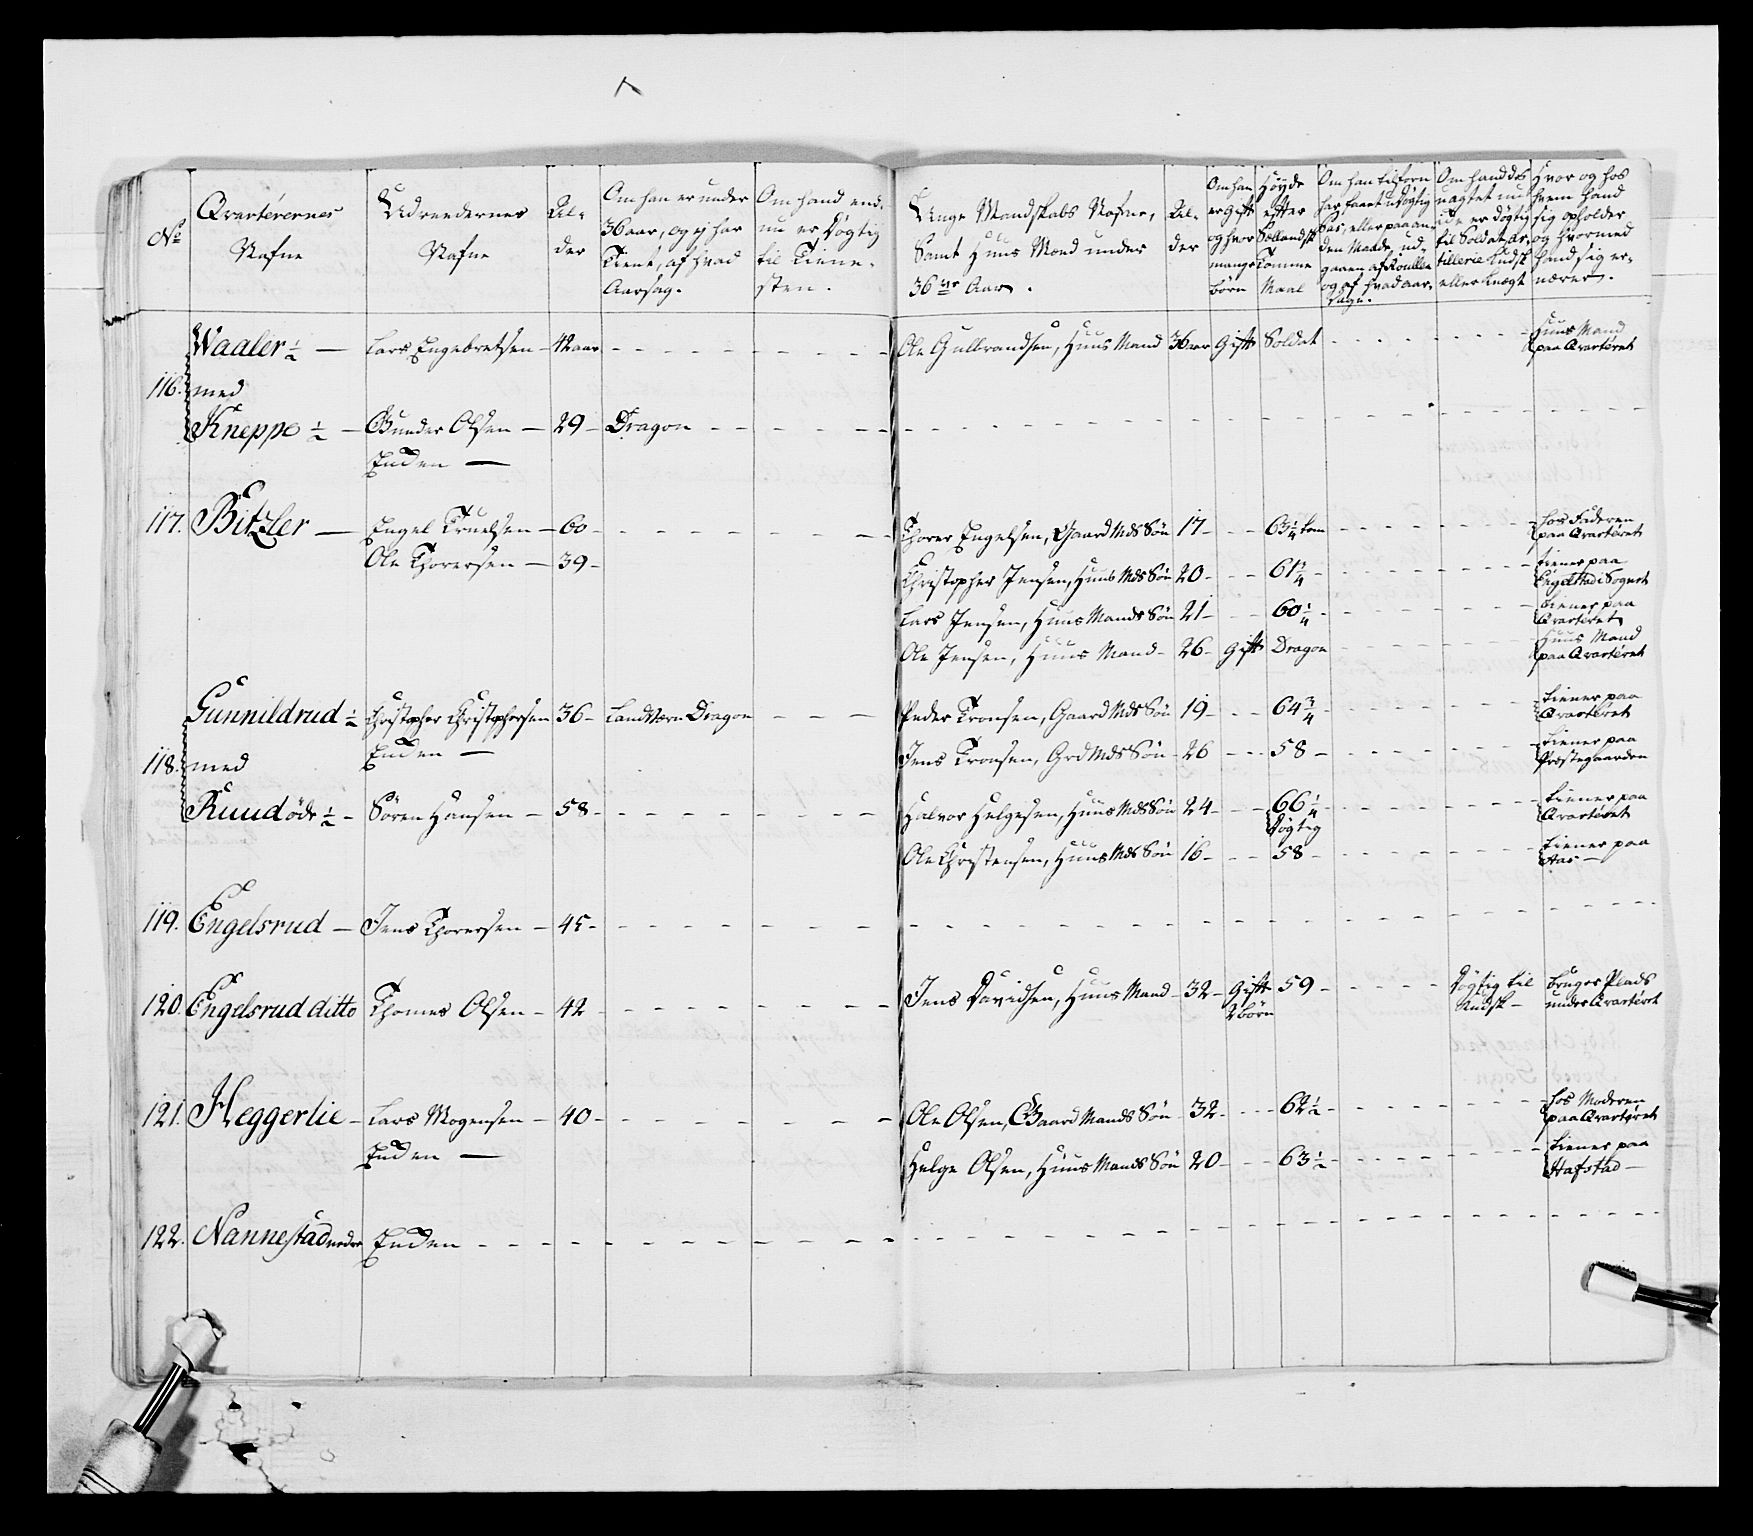 No
Qvarterernes
Nafne
Udreedernes
Nafne
Al-
der
Om han er under
36 aar, og ej har
Tient, af hvad
Aarsag.
Om hand end-
nu er Døgtig
til Tiene-
sten.
Unge Mandskabs Nafne,
Samt Huus Mænd under
36 Aar.
Al-
der
Om han
er Gift
og hvor
mange
børn
Høyde
efter
Sællandsk
Tomme
Maal
Om han tilforn
har faaet Udygtig
Pas, eller paa an-
den Maade, ud-
gaaen af Roullen
og af hvad aar-
sage.
Om hand des
uagtet nu
er Døgtig
til Soldat, Ar-
tillerie Kudsk
eller Knegt
Hvor og hos
hvem hand
sig opholder
og hvormed
hand sig er-
nærer.
Waaler ½ — Lars Engebretsen - 42 aar Ole Gulbrandsen, Huus Mand 36 aar Gift Soldat Huus Mand
paa Qvarteret
116. med
Kneppe ½ — Gunder Olsen — 29 - Dragon
Enden —
117. Bitzler — Engel Truelsen - 60 - Thorer Engelsen, Gaard Mds Søn 17 - 63¼ tom hos Faderen
paa Qvarteret
Ole Thorersen — 39 - Christopher Jensen, Huus Mds Søn 20 - 61¾ - tiener paa
Engelstad i Sognet
Lars Jensen, Huus Mands Søn 21 - 60¼ tiener paa
Qvarteret
Ole Jensen, Huus Mand - 26 - Gift Dragon Huus Mand
paa Qvarteret
Gunnildrud ½ Christopher Christophersen 36 - Landværn Dragon Peder Tronsen, Gaard Mds Søn 19 - 64¾ tiener paa
Qvarteret
Enden —
118. med Jens Tronsen, Grd Mds Søn 26 58 - tiener paa
Præstegaarden
Ruud øde ½ - Søren Hansen — 58 - Halvor Helgesen, Huus Mds Søn 24 - 66¼
Døgtig tiener paa
Qvarteret
Ole Christensen, Huus Mds Søn 16 - 58 - tiener paa
Aas —
119. Engelsrud — Jens Thorersen - 45 -
120. Engelsrud ditto Thomes Olsen - 42 Jens Davidsen, Huus Mand - 32 - Gift
2 børn 59 - Døgtig til
Kudsk — bruger Plads
under Qvarteret
121. Heggerlie - Lars Mogensen - 40 - Ole Olsen, Gaard Mands Søn 32 - 62½ - hos Moderen
paa Qvarteret
Enden — Helge Olsen, Huus Mands Søn 20 - 63½ - tiener paa
Hafstad —
122. Nannestad nedre Enden